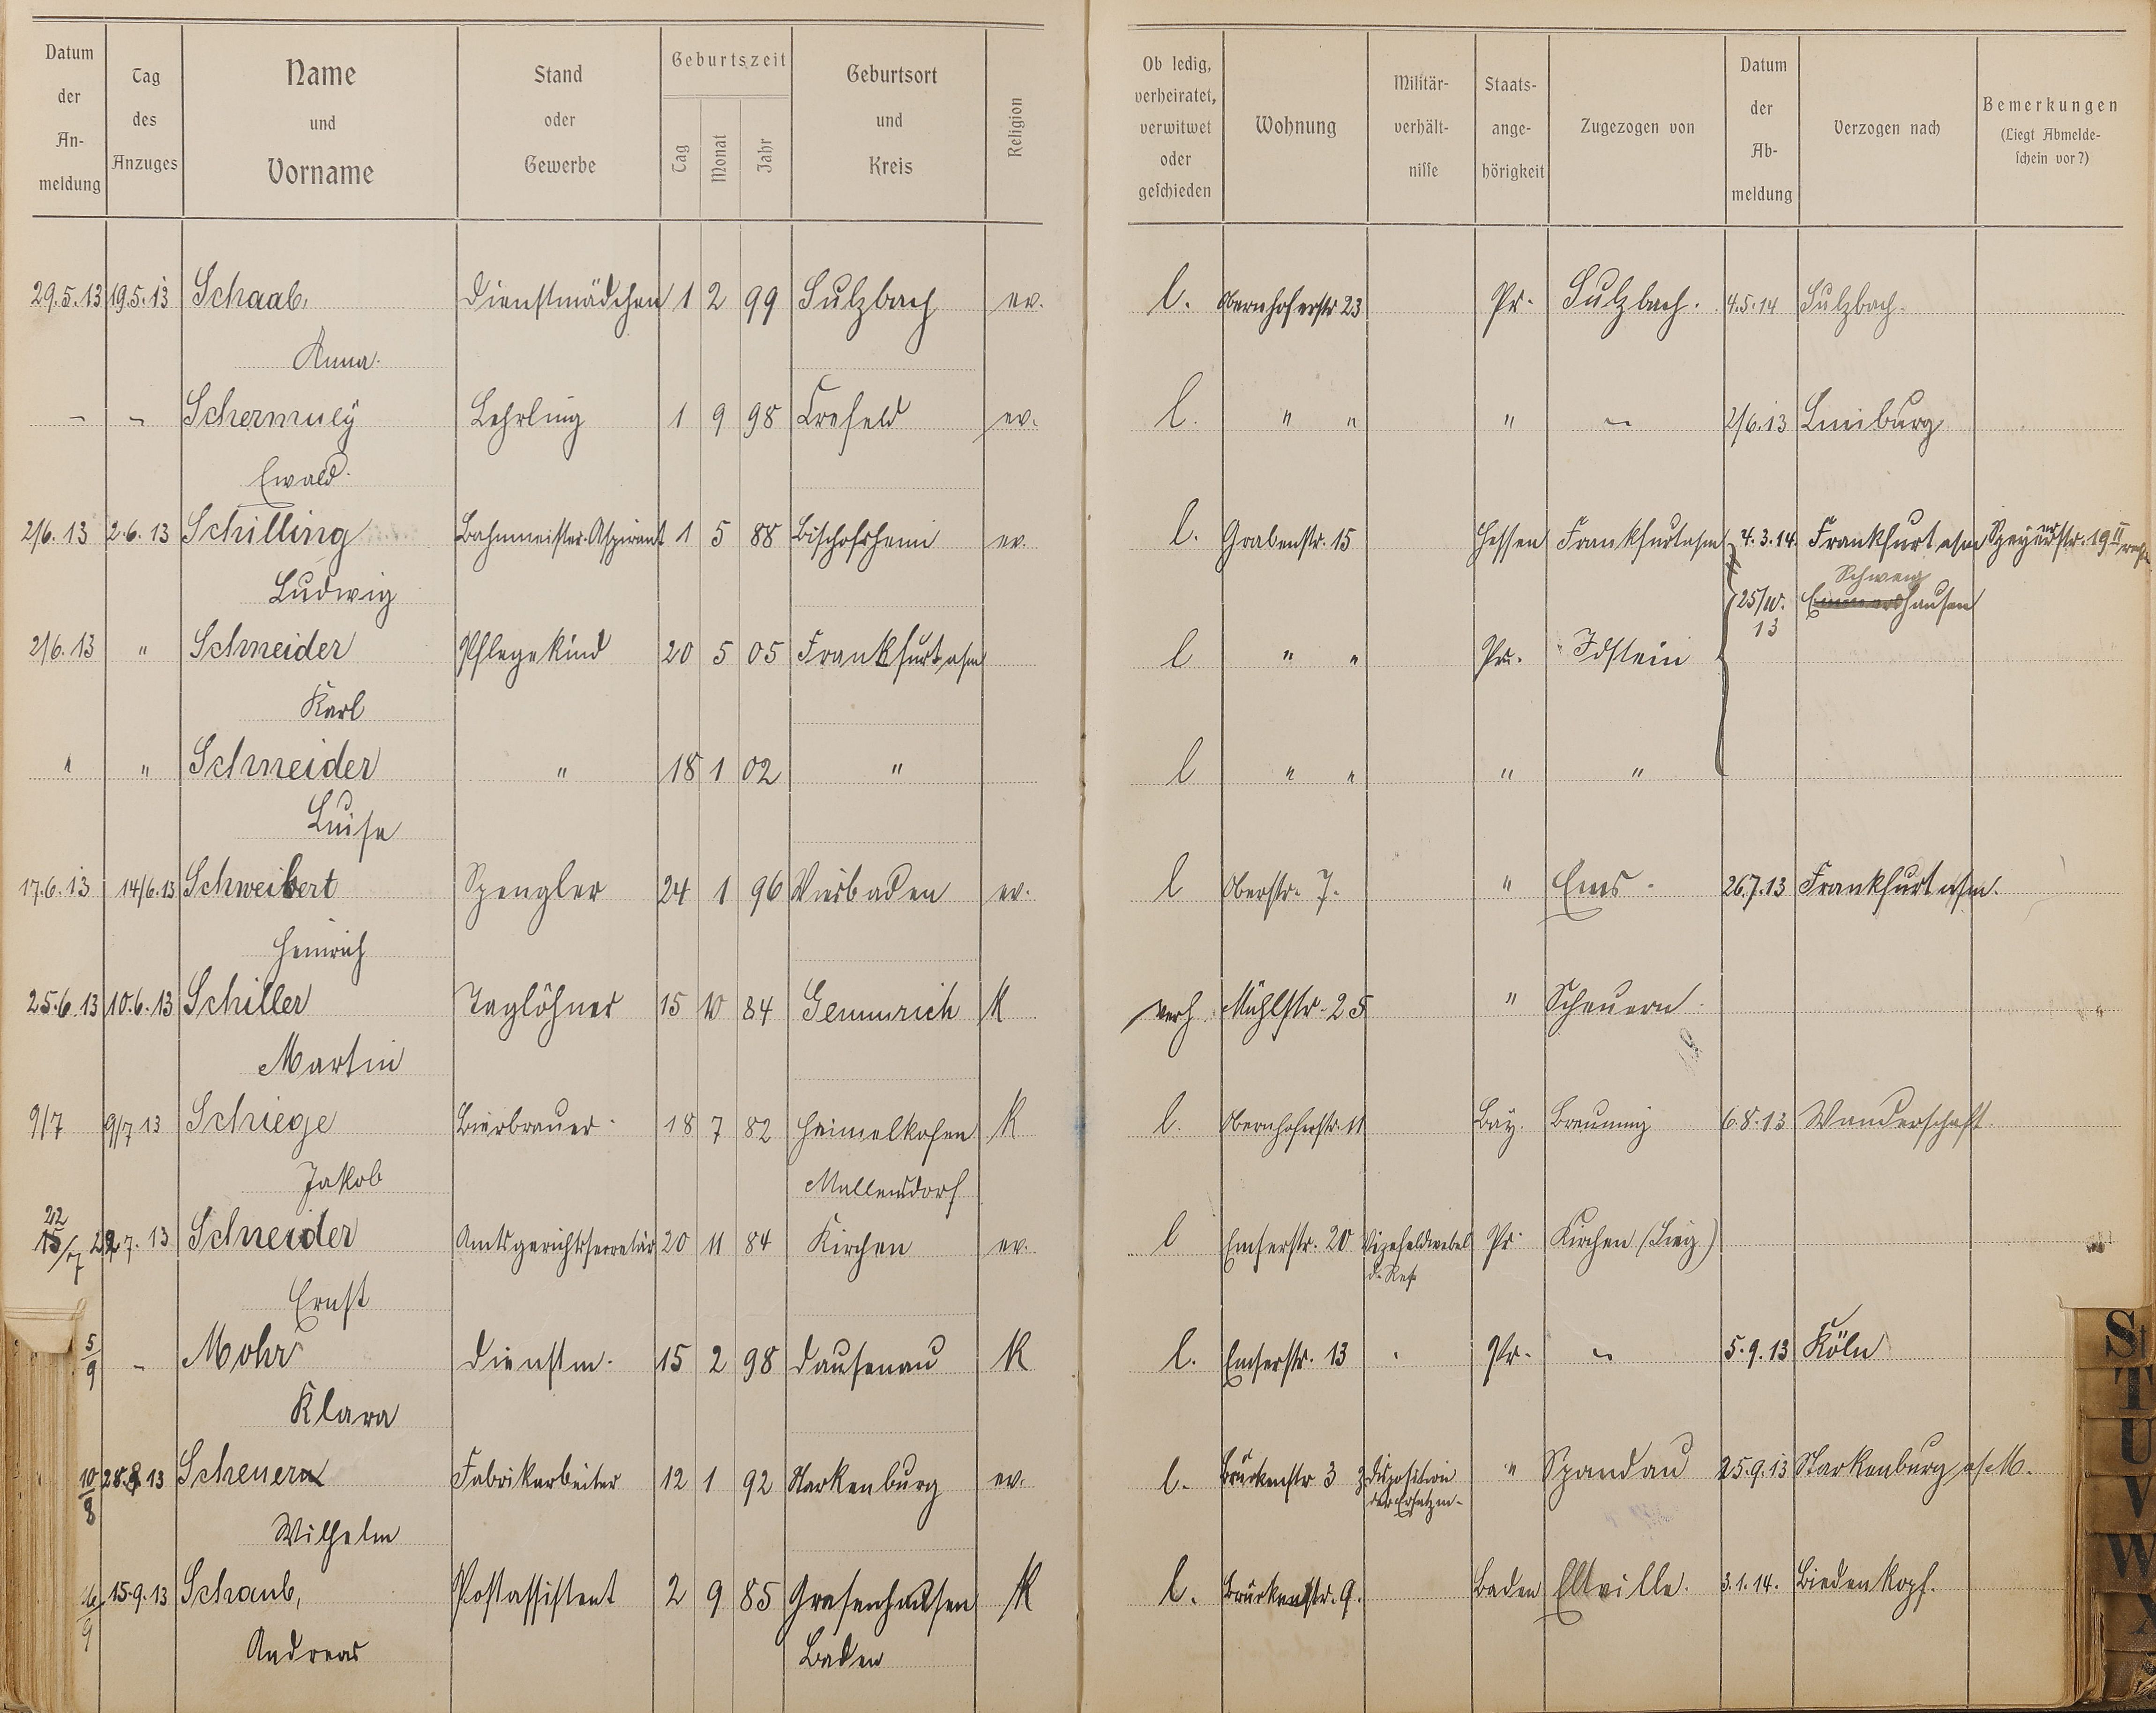 Datum der Anmeldung | Tag des Anzuges | Name und Vorname | Stand oder Gewerbe | Geburtszeit Tag Monat Jahr | Geburtsort und Kreis | Religion | Ob ledig, verheiratet, verwitwet oder geschieden | Wohnung | Militärverhältnisse | Staatsangehörigkeit | Zugezogen von | Datum der Abmeldung | Verzogen nach | Bemerkungen (Liegt Abmeldeschein vor?)
29.5.13 19.5.13 Schaab, Dienstmädchen 1 2 99 Sulzbach ev. l. Obernhoferstr 23 Pr. Sulzbach. 4.5.14 Sulzbach.
Anna.
– – Schermuly Lehrling 1 9 98 Crefeld ev. l. " " " – 2/6.13 Limburg
Ewald.
2/6.13 2.6.13 Schilling Bahnmeister-Aspirant 1 5 88 Bischofsheim ev. l. Grabenstr. 15 Hessen Frankfurt a/m 4.3.14. Frankfurt a/m Speyererstr. 19 II
Ludwig 25/10. 13 Schweighausen
2/6.13 " Schneider Pflegekind 20 5 05 Frankfurt a/m l " " Pr. Idstein
Karl
" " Schneider " 18 1 02 " l " " " "
Luise
17.6.13 14/6.13 Schweibert Spengler 24 1 96 Wiesbaden ev. l Oberstr. 7. " Ems. 26.7.13 Frankfurt a/m.
Heinrich
25.6.13 10.6.13 Schiller Taglöhner 15 10 84 Gemmrich K verh. Mühlstr. 25 " Scheuern
Martin
9/7 9/7 13 Schiege Bierbrauer 18 7 82 Heimelkofen K l. Obernhoferstr. 11 Bay. 6.8.13 Wanderschaft.
Jakob Mallersdorf
22/7 22.7.13 Schneider Amtsgerichtssecretär 20 11 84 Kirchen ev. l Emserstr. 20 Vizefeldwebel d. Res. Pr. Kirchen (Sieg)
Ernst
5/9 – Mohr Dienstm. 15 2 98 Dausenau K l. Emserstr. 13 Pr. – 5.9.13 Köln
Klara
10/8 28.8 13 Scheuern Fabrikarbeiter 12 1 92 Starkenburg ev. l. Brückenstr 3 z. Disposition der Ersatzm. " Spandau 25.9.13 Starkenburg a/M.
Wilhelm
16/9 15.9.13 Schaub, Postassistent 2 9 85 Grafenhausen K l. Brückenstr. 9. Baden Eltville. 3.1.14. Biedenkopf.
Andreas Baden
St
T
U
V
W
X